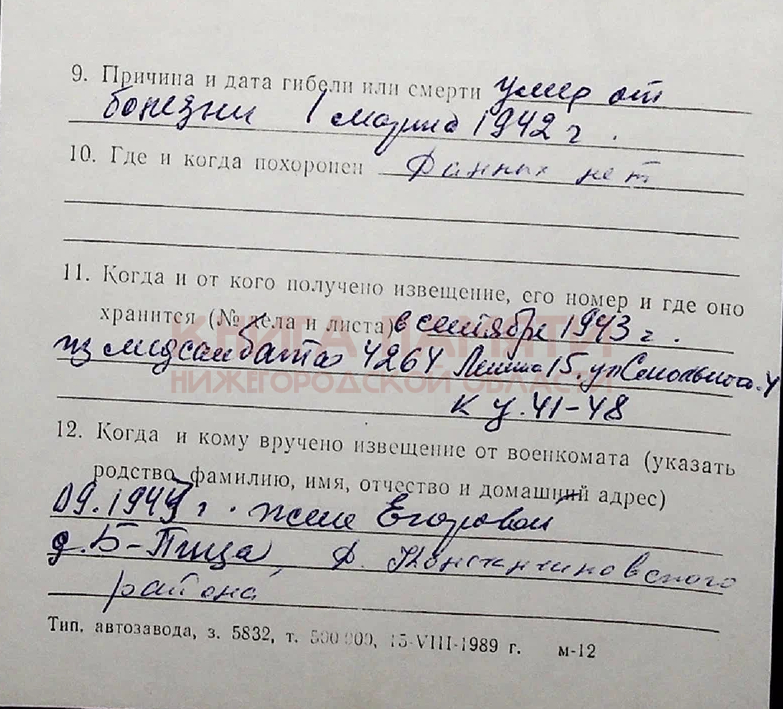 9. Причина и дата гибели или смерти умер от
болезни 1 марта 1942 г.
10. Где и когда похоронен Данных нет
11. Когда и от кого получено извещение, его номер и где оно
хранится (№ дела и листа) в сентябре 1943 г.
КНИГА ПАМЯТИ
из медсанбата 4264 15. ул
НИЖЕГОРОДСКОЙ ОБЛАСТИ
к у. 41-48
12. Когда и кому вручено извещение от военкомата (указать
родство, фамилию, имя, отчество и домашний адрес)
09.1943 г. жене Егоровой
д. Б-Пица, Д. Константиновского
района
Тип. автозавода, з. 5832, т. 500 000, 15-VIII-1989 г. м-12